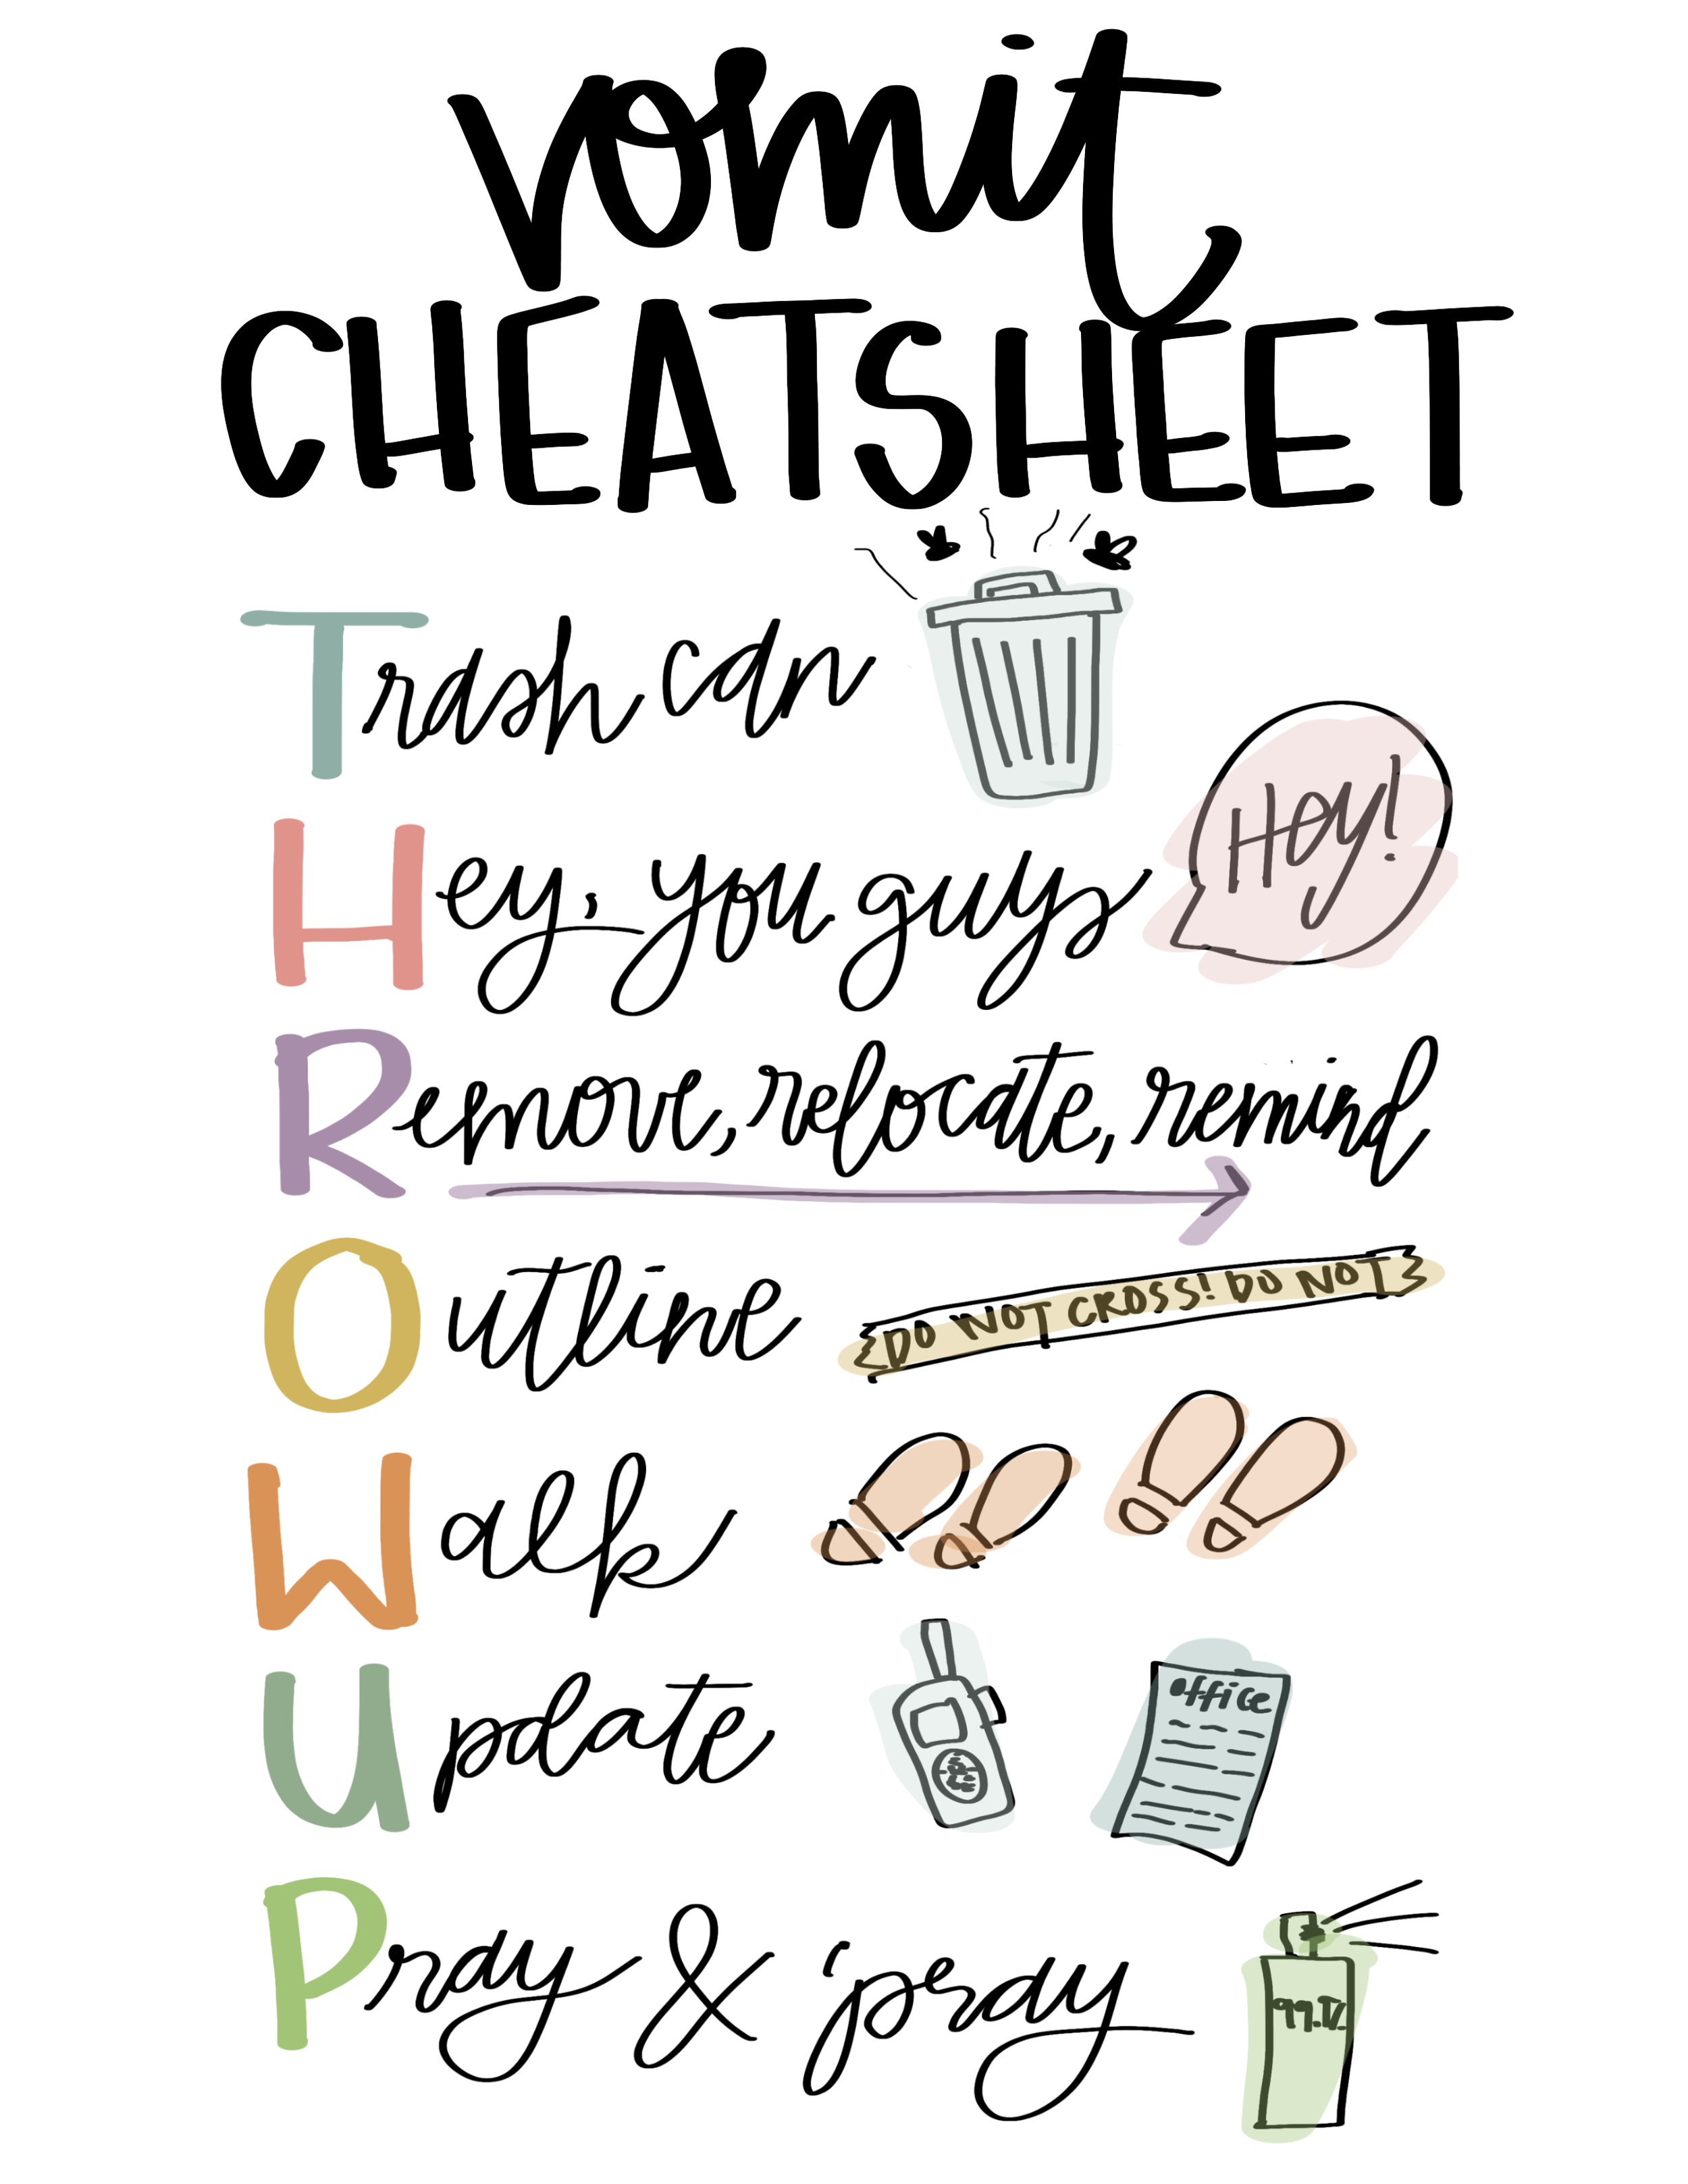 vomit
CHEATSHEET
Trash can
Hey, you guys
Hey!
Remove, relocate, remind
Outline
DO NOT CROSS! DO NOT
Walk
Update
office
Pray & spray
99.9%